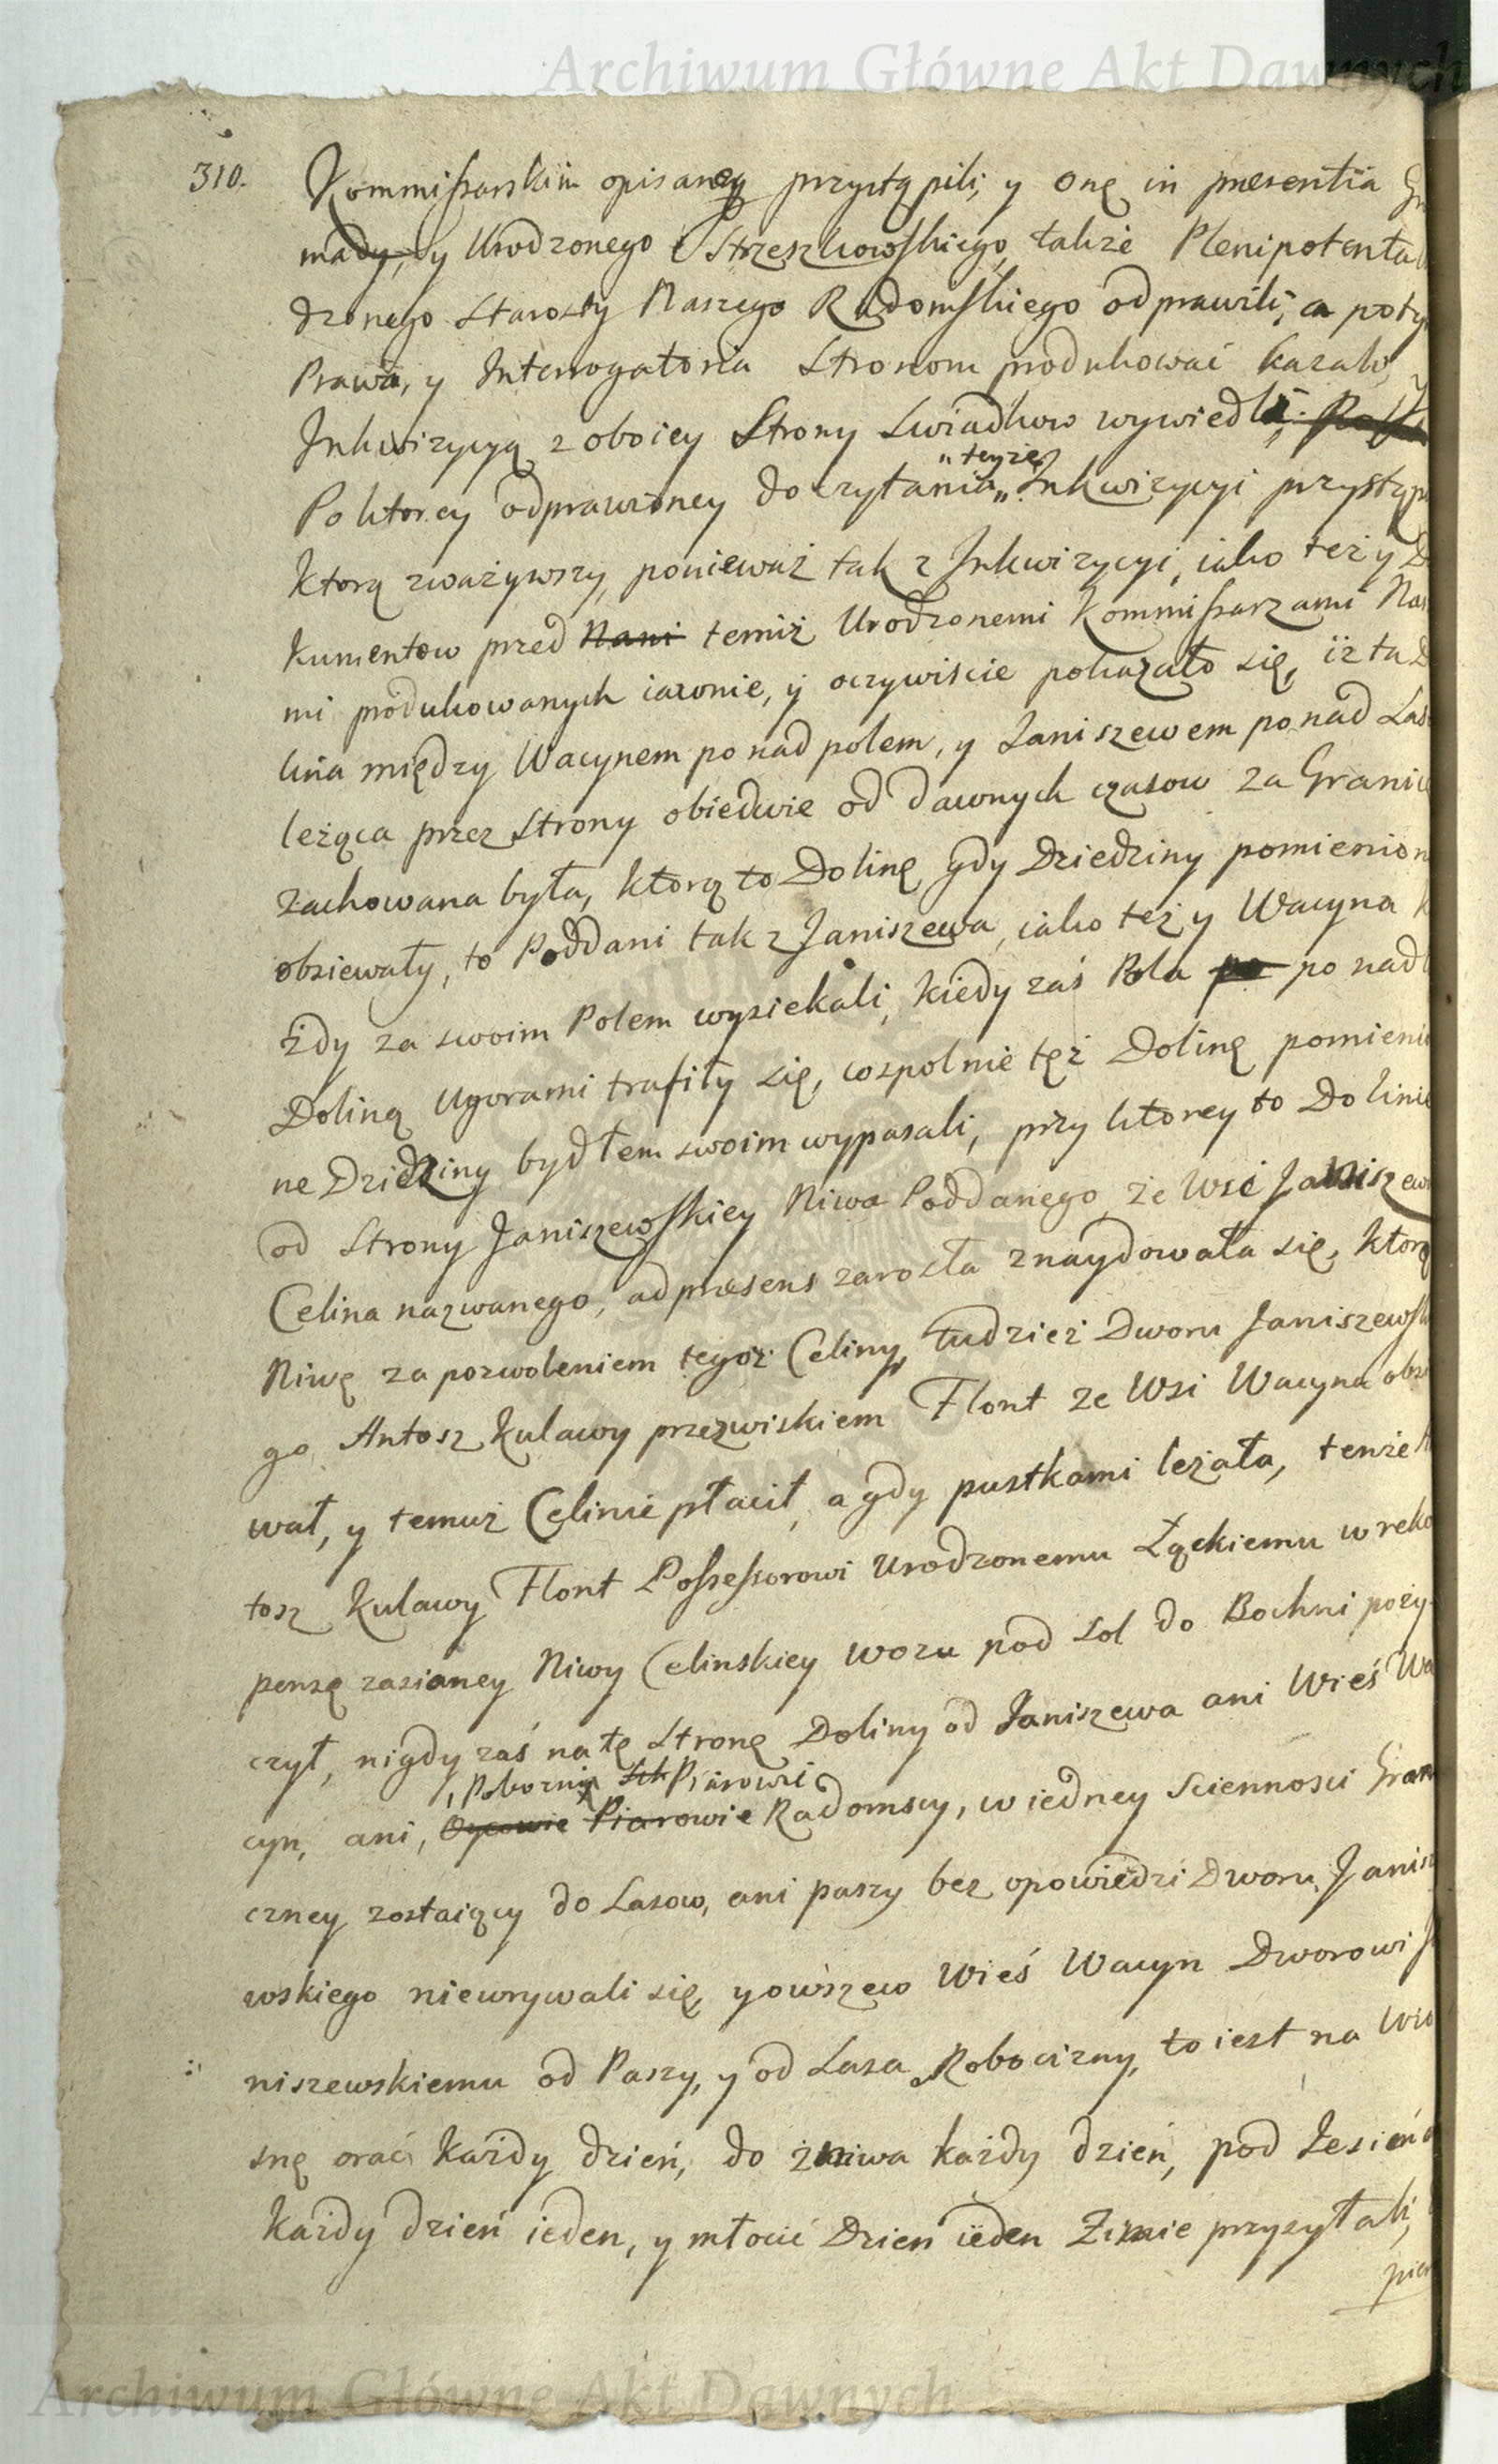 Archiwum Główne Akt Dawnych
310.
Kommissarskim opisaney przystąpili, y onę in præsentia Gr
mady, y Urodzonego Strzeszkowskiego, także Plenipotenta
dzonego Starosty Naszego Radomskiego odprawili, a poty
Prawa, y Interrogatoria Stronom produkować kazali,
Inkwizycyą z oboiey Strony Swiadkow wywiedli,
Po ktorey odprawioney do czytania „teyże„ Inkwizycyi przystąp
Ktorą zważywszy, ponieważ tak z Inkwizycyi, iako też y D
kumentow przed Nami temiż Urodzonemi Kommissarzami Nas
mi produkowanych iawnie, y oczywiscie pokazało się, iż ta D
lina między Wacynem ponad polem, y Janiszewem ponad Las
leżąca przez Strony obiedwie od dawnych czasow za Granic
zachowana była, ktorą to Dolinę gdy Dziedziny pomienion
obsiewały, to Poddani tak z Janiszewa, iako też y Wacyna k
żdy za swoim Polem wysiekali, kiedy zaś Pola po ponad
Doliną Ugorami trafiły się, wspolnie też Dolinę pomienio
ne Dziedziny bydłem swoim wypasali, przy ktorey to Dolinie
od Strony Janiszewskiey Niwa Poddanego ze Wsi Janiszew
Celina nazwanego, ad præsens zarosła znaydowała się, ktorą
Niwę za pozwoleniem tegoż Celiny, tudzież Dworu Janiszewsk
go Antosz Kulawy przezwiskiem Flont ze Wsi Wacyna obsi
wał, y temuż Celinie płacił, a gdy pustkami leżała, tenże
tosz Kulawy Flont Possessorowi Urodzonemu Łąckiemu w reko
pensę zasianey Niwy Celinskiey wozu pod Sol do Bochni poży
czył, nigdy zaś na tę Stronę Doliny od Janiszewa ani Wieś Wa
Pobożni Sch Piarowie
cyn, ani, Oycowie Piarowie Radomscy, w iedney Scienności Gran
czney zostaiący do Lasow, ani paszy bez opowiedzi Dworu Janisz
wskiego niewrywali się, y owszew Wieś Wacyn Dworowi J
niszewskiemu od Paszy, y od Lasa Robocizny, to iest na Wio
snę orać każdy dzień, do żniwa każdy dzień, pod Jesień
każdy dzień ieden, y młocić Dzień ieden Zimie przysyłali,
pier
Archiwum Główne Akt Dawnych